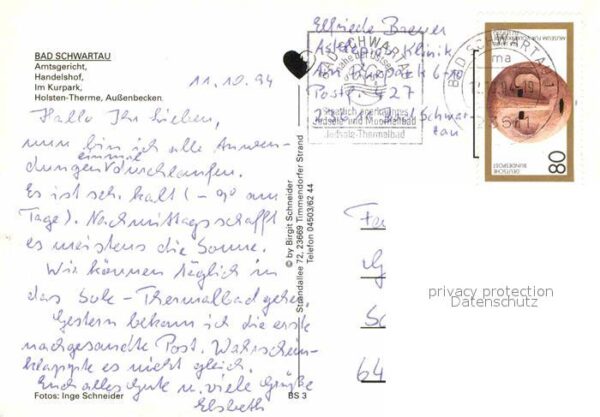 BAD SCHWARTAU
Amtsgericht,
Handelshof,
Im Kurpark,
Holsten-Therme, Außenbecken.
11.10.94
Hallo Ihr Lieben,
nun bin ich alle Anwen-
einmal
dungen durchlaufen.
Es ist sehr kalt (-9° am
Tage). Nachmittags schafft
es meistens die Sonne.
Wir können täglich in
das Sole-Thermalbad gehen.
Gestern bekam ich die erste
nachgesandte Post. Wahrschein-
klappte es nicht gleich.
Euch alles Gute u. viele Grüße
Elsbeth
Fotos: Inge Schneider
BS 3
© by Birgit Schneider
Strandallee 72, 23669 Timmendorfer Strand
Telefon 04503/62 44
Elfriede
Asklepios Klinik
Am Kurpark 6-10
Postf. 427
Bad Schwar-
tau
BAD SCHWARTAU
nahe der Ostsee
Staatlich anerkanntes
Jodsole- und Moorheilbad
Jodsole-Thermalbad
BAD SCHWARTAU 1
DEUTSCHE
BUNDESPOST
80
64
privacy protection
Datenschutz